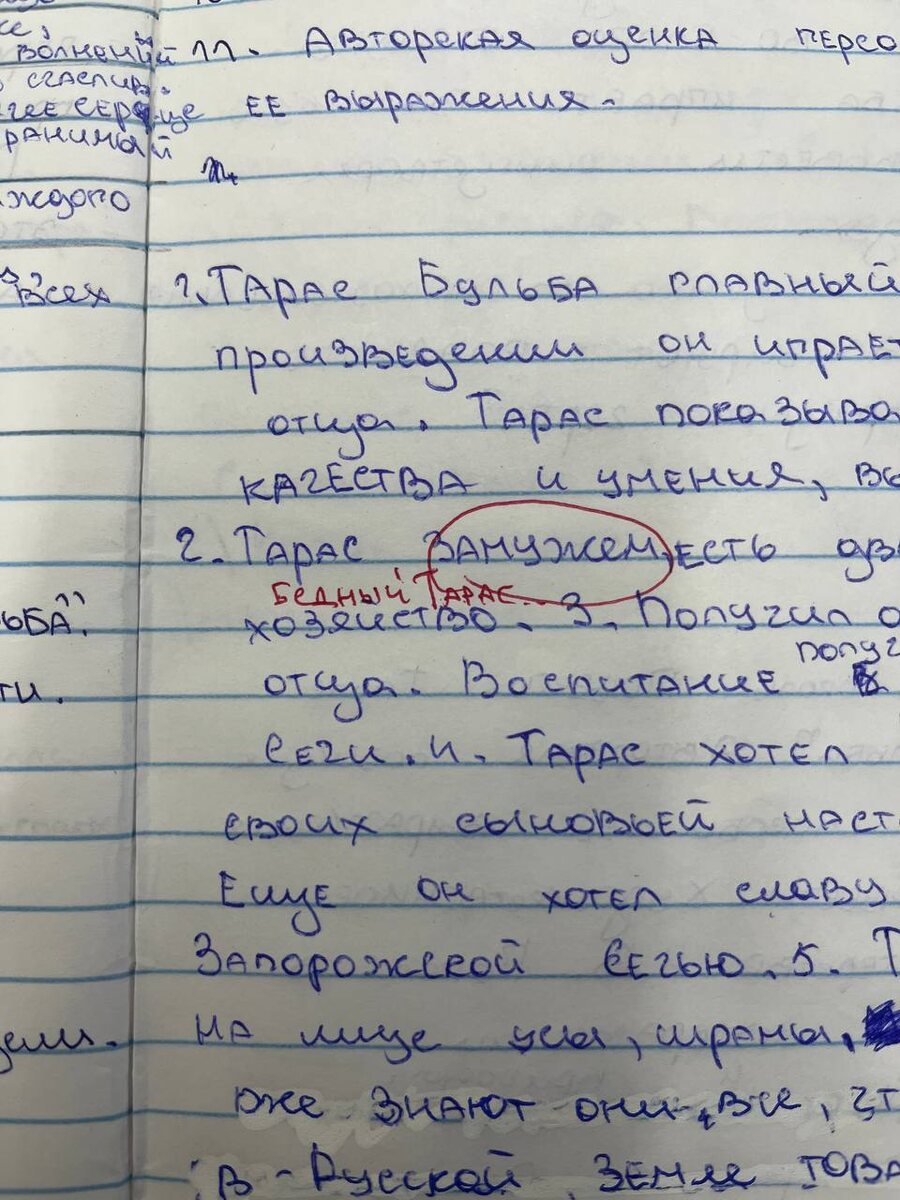 же,
волнений
счаслив.
чее сердце
ранимый
ждого
всех
ьба".
ти.
дели.
11. Авторская оценка персо
ее выражения.
1. Тарас Бульба главный
произведении он играет
отца. Тарас показыва
качества и умения, вы
2. Тарас замужем, есть дв
Бедный Тарас...
хозяйство. 3. Получил о
получ
отца. Воспитание
Сечи. 4. Тарас хотел
своих сыновьей наст
Еще он хотел славу
Запорожской Сечью. 5. Т
на лице усы, шрамы,
же знают они, все, чт
в Русской земле това